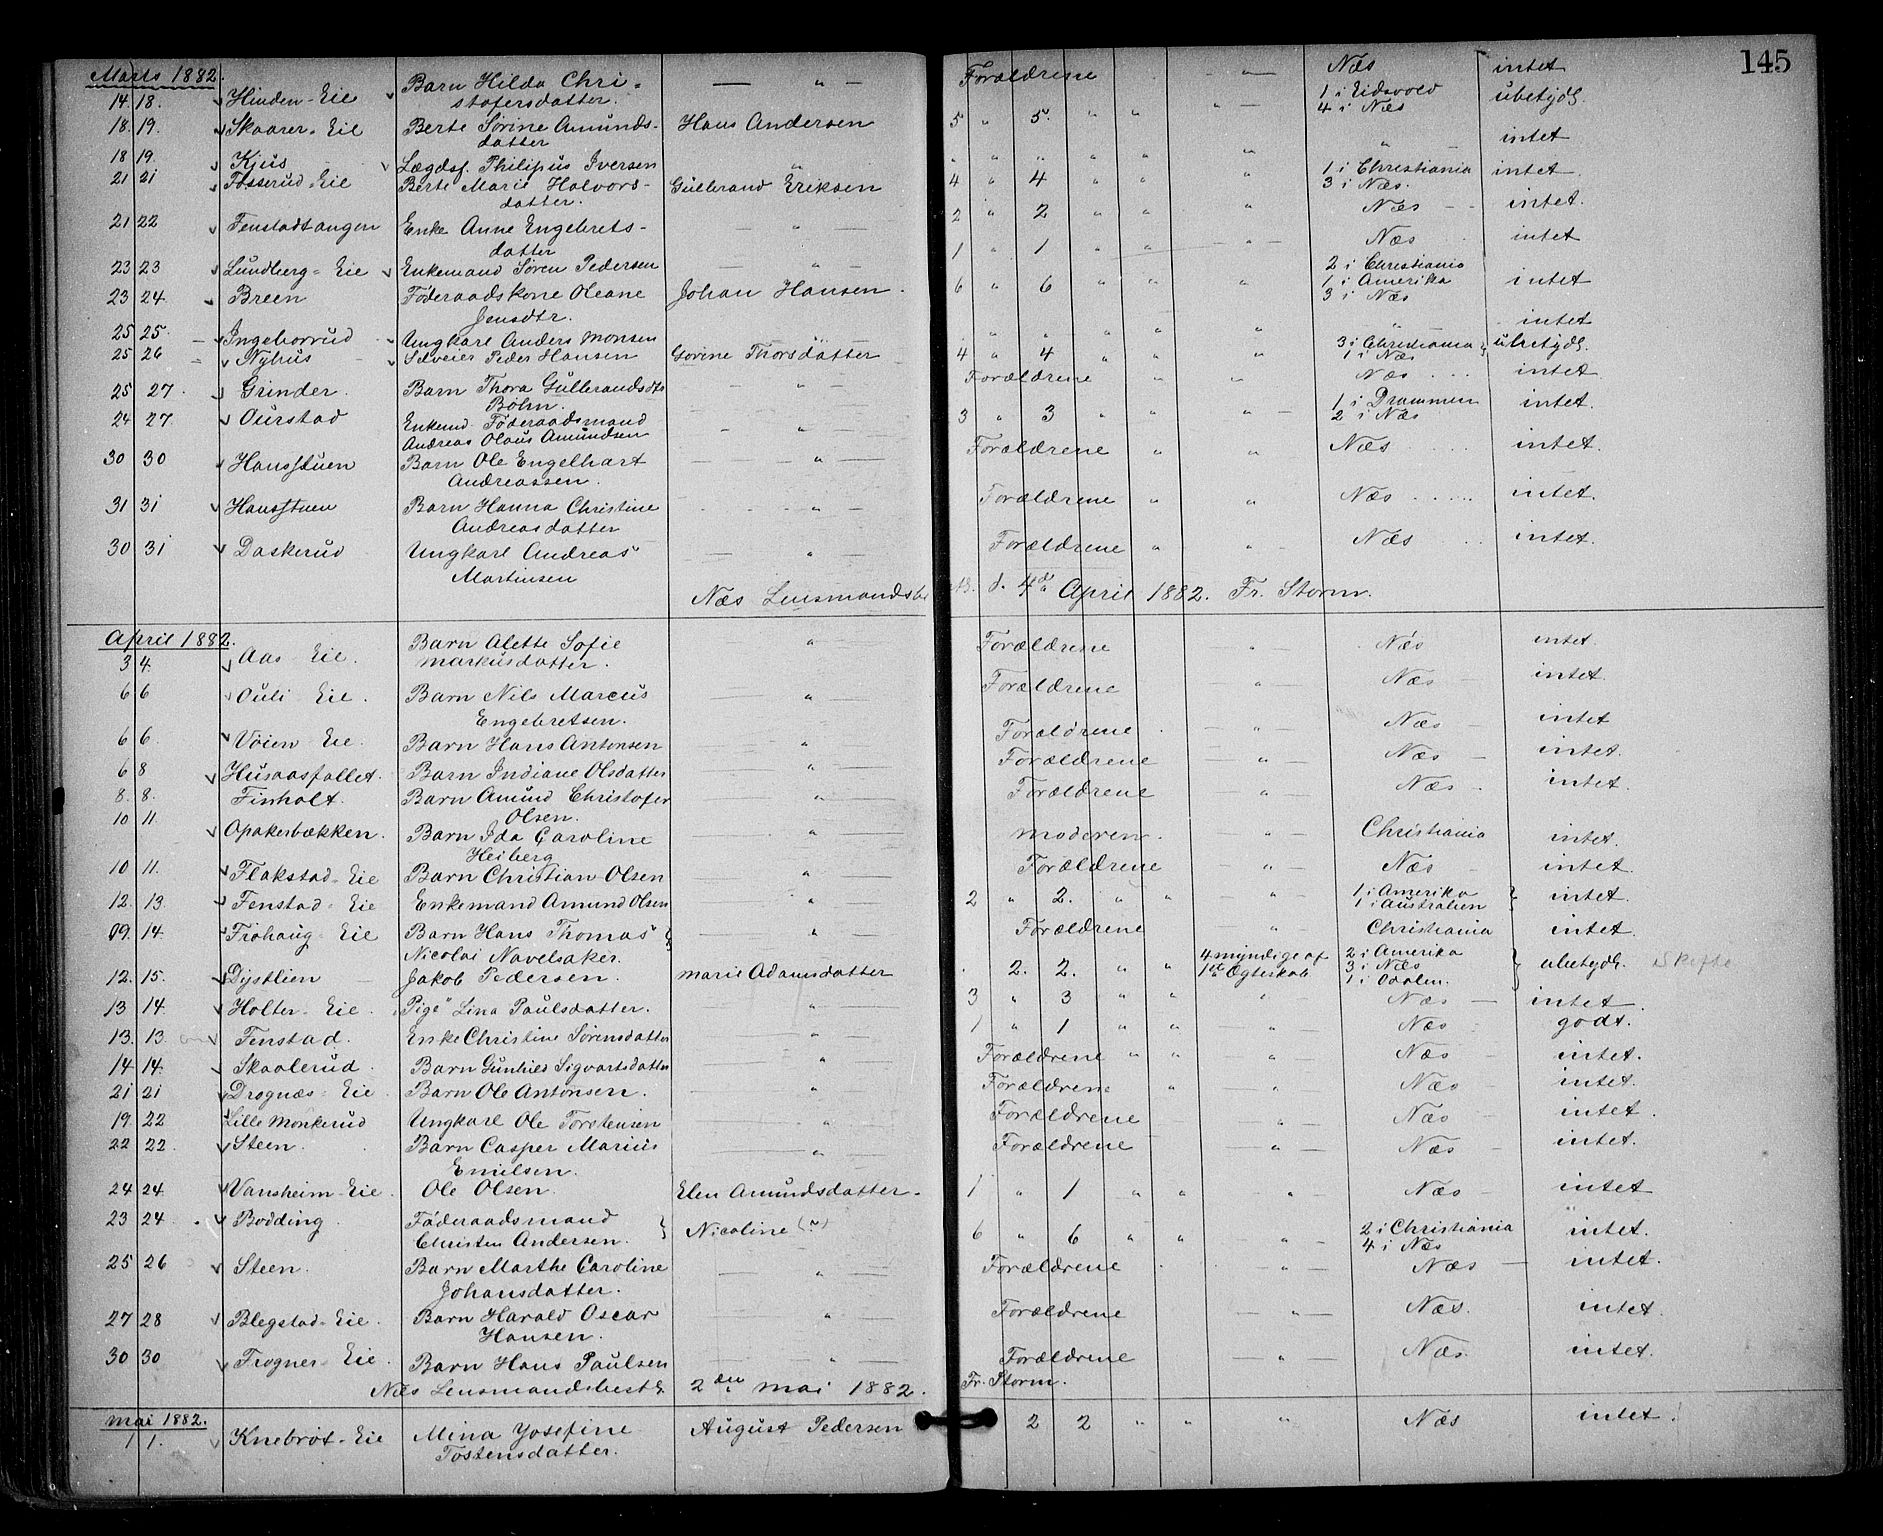 145
Marts 1882.
14 18. Hinden-Eie Barn Hilda Chri- — " — Forældrene " Næs intet
stofersdatter.
18. 19. Skaarer-Eie Berte Sørine Amunds- Hans Andersen 5 " 5. " " " 1 i Eidsvold ubetydl.
datter 4 i Næs
18 19. Kjus Lægdsf. Philipus Iversen " " " " " " " " intet
21 21 Fosserud-Eie Berte Marie Halvors- Gulbrand Eriksen 4 " 4 " " " 1 i Christiania intet
datter. 3 i Næs.
21 22 Fenstadtangen Enke Anne Engebrets- — " — 2 " 2 " " " Næs intet.
datter
23 23 Lundberg-Eie Enkemand Søren Pedersen " 1 " 1 " " " Næs intet
23 24. Breen Føderaadskone Oleane Johan Hansen. 6 " 6 " " " 2 i Christiania
Jensdtr. 1 i Amerika intet
3 i Næs
25 25. Ingeborrud Ungkarl Anders Monsen " " " " " " " " intet
25 26 Nyhus Selveier Peder Hansen Gorine Thorsdatter 4 " 4 " " " 3 i Christiania ubetydl.
1 i Næs
25 27. Grinder. Barn Thora Gulbrandsdtr — " — Forældrene " " Næs intet.
Bøhn.
24 27. Ourstad Enkemd Føderaadsmand — " — 3 " 3 " " " 1 i Drammen intet.
Andreas Olaus Amundsen 2 i Næs
30 30 Hansstuen Barn Ole Engelhart " Forældrene " " Næs intet.
Andreassen.
31 31 Hansstuen Barn Hanna Christine " Forældrene " " Næs intet.
Andreasdatter
30 31 Daskerud Ungkarl Andreas — " — Forældrene " " Næs intet.
Martinsen
Næs Lensmandsbe d. 4de April 1882. Fr. Storm.
April 1882.
3 4. Aas-Eie. Barn Alette Sofie " Forældrene " Næs intet.
Markusdatter.
6 6 Ouli-Eie. Barn Nils Marcus " Forældrene " Næs intet.
Engebretsen.
6 6. Vøien-Eie. Barn Hans Antonsen " Forældrene " Næs intet
6 8 Husaasfallet. Barn Indiane Olsdatter " Forældrene " Næs intet.
8. 8. Finholt. Barn Amund Christofer " Forældrene " Næs intet.
Olsen.
10 11. Opakerbækken. Barn Ida Caroline " Moderen. " Christiania intet.
Heiberg
10 11. Flakstad-Eie Barn Christian Olsen " Forældrene " Næs intet.
12. 13. Fenstad-Eie Enkemand Amund Olsen " 2 " 2. " " " 1 i Amerika } intet.
1 i Australien
09. 14. Frøhaug-Eie Barn Hans Thomas } " Forældrene " Christiania intet.
Nicolai Navelsaker.
12. 15. Dystlien Jakob Pedersen. Marie Adamsdatter . 2. 2. " " 4 myndige af 2 i Amerika } ubetydl. Skifte
1ste Ægteskab 3 i Næs
1 i Odalen.
13 14. Holter-Eie. Pige Lina Paulsdatter. " 3 " 3 " " " Næs intet
13. 13. Fenstad. Enke Christine Sørensdatter " 1 " 1 " " " Næs godt.
14 14. Skaalerud. Barn Gunhild Sigvartsdatter " Forældrene " " " Næs intet.
21 21 Drognæs-Eie Barn Ole Antonsen. " Forældrene " " Næs intet.
19. 22 Lille Monkerud Ungkarl Ole Torstensen " Forældrene " Næs intet.
22 22. Steen. Barn Casper Marius " Forældrene " Næs intet.
Emilsen.
24 24. Vansheim-Eie. Ole Olsen. Elen Amundsdatter. 1 " 1 " " " Næs intet
23 24. Bodding. Føderaadsmand } Nicoline (~) 6 " 6 " " " 2 i Christiania intet.
Christen Andersen. 4 i Næs
25 26 Steen. Barn Marthe Caroline " Forældrene " Næs intet.
Johansdatter.
27 28 Blegstad-Eie. Barn Harald Oscar " Forældrene " Næs. intet.
Hansen.
30 30 Frogner-Eie. Barn Hans Paulsen " Forældrene " Næs. intet.
Næs Lensmandsbest. 2den Mai 1882. Fr. Storm.
Mai 1882.
1 1. Knebrot-Eie Mina Josefine August Pedersen 2 2 " " " Næs intet.
Tostensdatter.